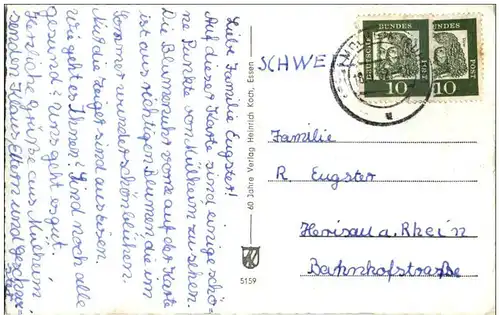 Liebe Familie Eugster!
Auf dieser Karte sind einige schö-
ne Punkte von Mülheim zu sehen.
Die Blumenuhr vorne auf der Karte
ist aus richtigen Blumen die im
Sommer wunderschön blühen.
Nur die Zeiger sind aus Eisen.
Wie geht es Ihnen? Sind noch alle
gesund? Uns geht es gut.
Herzliche Grüße aus Mülheim
senden Klaus Eltern und Geschwi-
60 Jahre Verlag Heinrich Koch, Essen
5159
SCHWE
DEUTSCHE BUNDES POST
10
DEUTSCHE BUNDES POST
10
Familie
R Eugster
Herisau a. Rhein
Bahnhofstraße